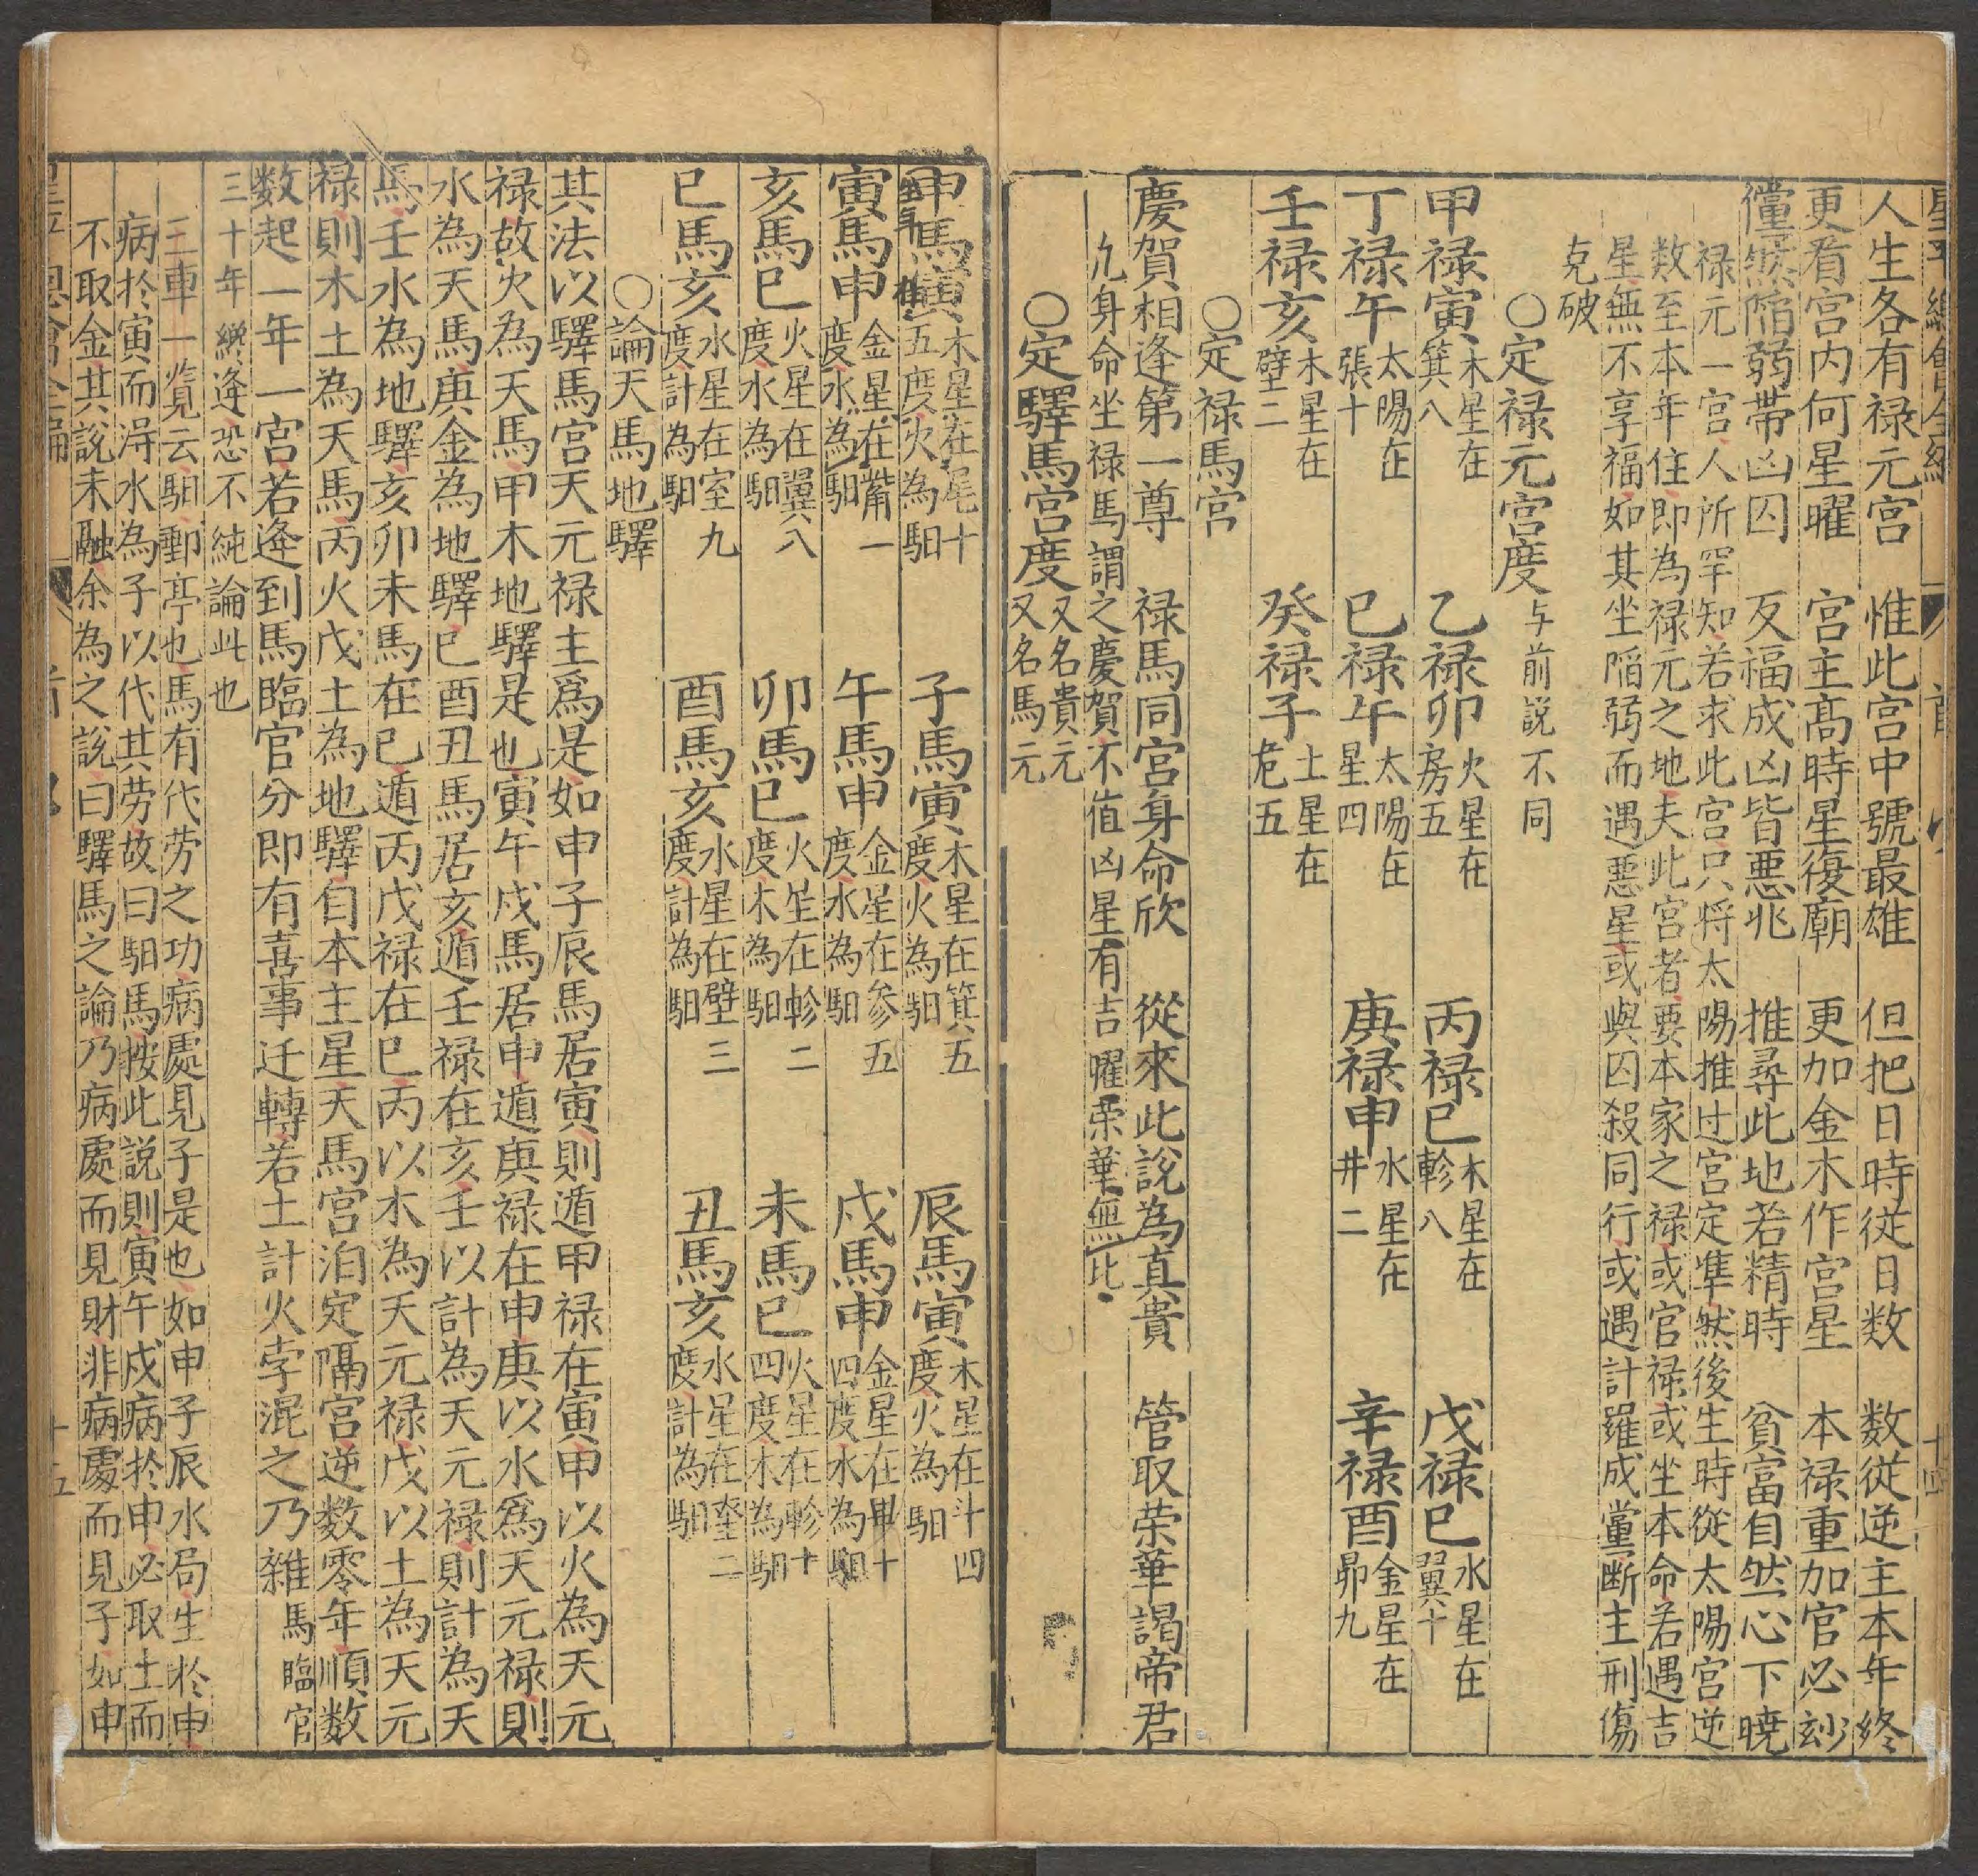 人生各有禄元宫　惟此宫中號最雄　但把日時従日数　数從逆主本年終
更看宫内何星曜　宫主髙時星復廟　更加金木作宫星　本禄重加官必玅
儻然陥弱帯凶囚　反福成凶皆悪兆　推尋此地若精時　貧富自然心下曉
禄元一宫人所罕知若求此宫只将太陽推过宫定凖然後生時從太陽宫逆
数至本年住即為禄元之地夫此宫者要本家之禄或官禄或坐本命若遇吉
星無不享福如其坐陥弱而遇悪星或與囚殺同行或遇計羅成黨断主刑傷
克破
○定禄元宫度与前説不同
甲禄寅木星在箕八　乙禄卯火星在房五　丙禄巳木星在軫八　戊禄巳水星在翼十
丁禄午太陽在張十　巳禄午太陽在星四　庚禄申水星在井二　辛禄酉金星在昴九
壬禄亥木星在壁二　癸禄子土星在危五
○定禄馬宫
慶賀相逢第一尊　禄馬同宫身命欣　從來此説為真貴　管取荣華謁帝君
凢身命坐禄馬謂之慶賀不值凶星有吉曜荣華無比
○定驛馬宫度又名貴元又名馬元
申馬寅木星在尾十五度火為馹　子馬寅木星在箕五度火為馹　辰馬寅木星在斗四度火為馹
寅馬申金星在觜一度水為馹　午馬申金星在参五度水為馹　戍馬申金星在畢十四度水為馹
亥馬巳火星在翼八度水為馹　卯馬巳火星在軫二度木為馹　未馬巳火星在軫十四度木為馹
巳馬亥水星在室九度計為馹　酉馬亥水星在壁三度計為馹　丑馬亥水星在奎二度計為馹
○論天馬地驛
其法以驛馬宫天元禄主爲是如申子辰馬居寅則遁甲禄在寅申以火為天元
禄故火為天馬甲木地驛是也寅午戍馬居申遁庚禄在申庚以水爲天元禄則
水為天馬庚金為地驛巳酉丑馬居亥遁壬禄在亥壬以計為天元禄則計為天
馬壬水為地驛亥卯未馬在巳遁丙戊禄在巳丙以木為天元禄戊以土為天元
禄則木土為天馬丙火戊土為地驛自本主星天馬宫泊定隔宫逆数零年順数
数起一年一宫若逢到馬臨官分即有喜事迁轉若土計火孛混之乃雜馬臨官
三十年纔逢恐不純論此也
三車一覧云馹郵亭也馬有代劳之功病處見子是也如申子辰水局生於申
病於寅而淂水為子以代其劳故曰馹馬按此説則寅午戍病於申必取土而
不取金其説未融余為之說曰驛馬之論乃病處而見財非病處而見子如申